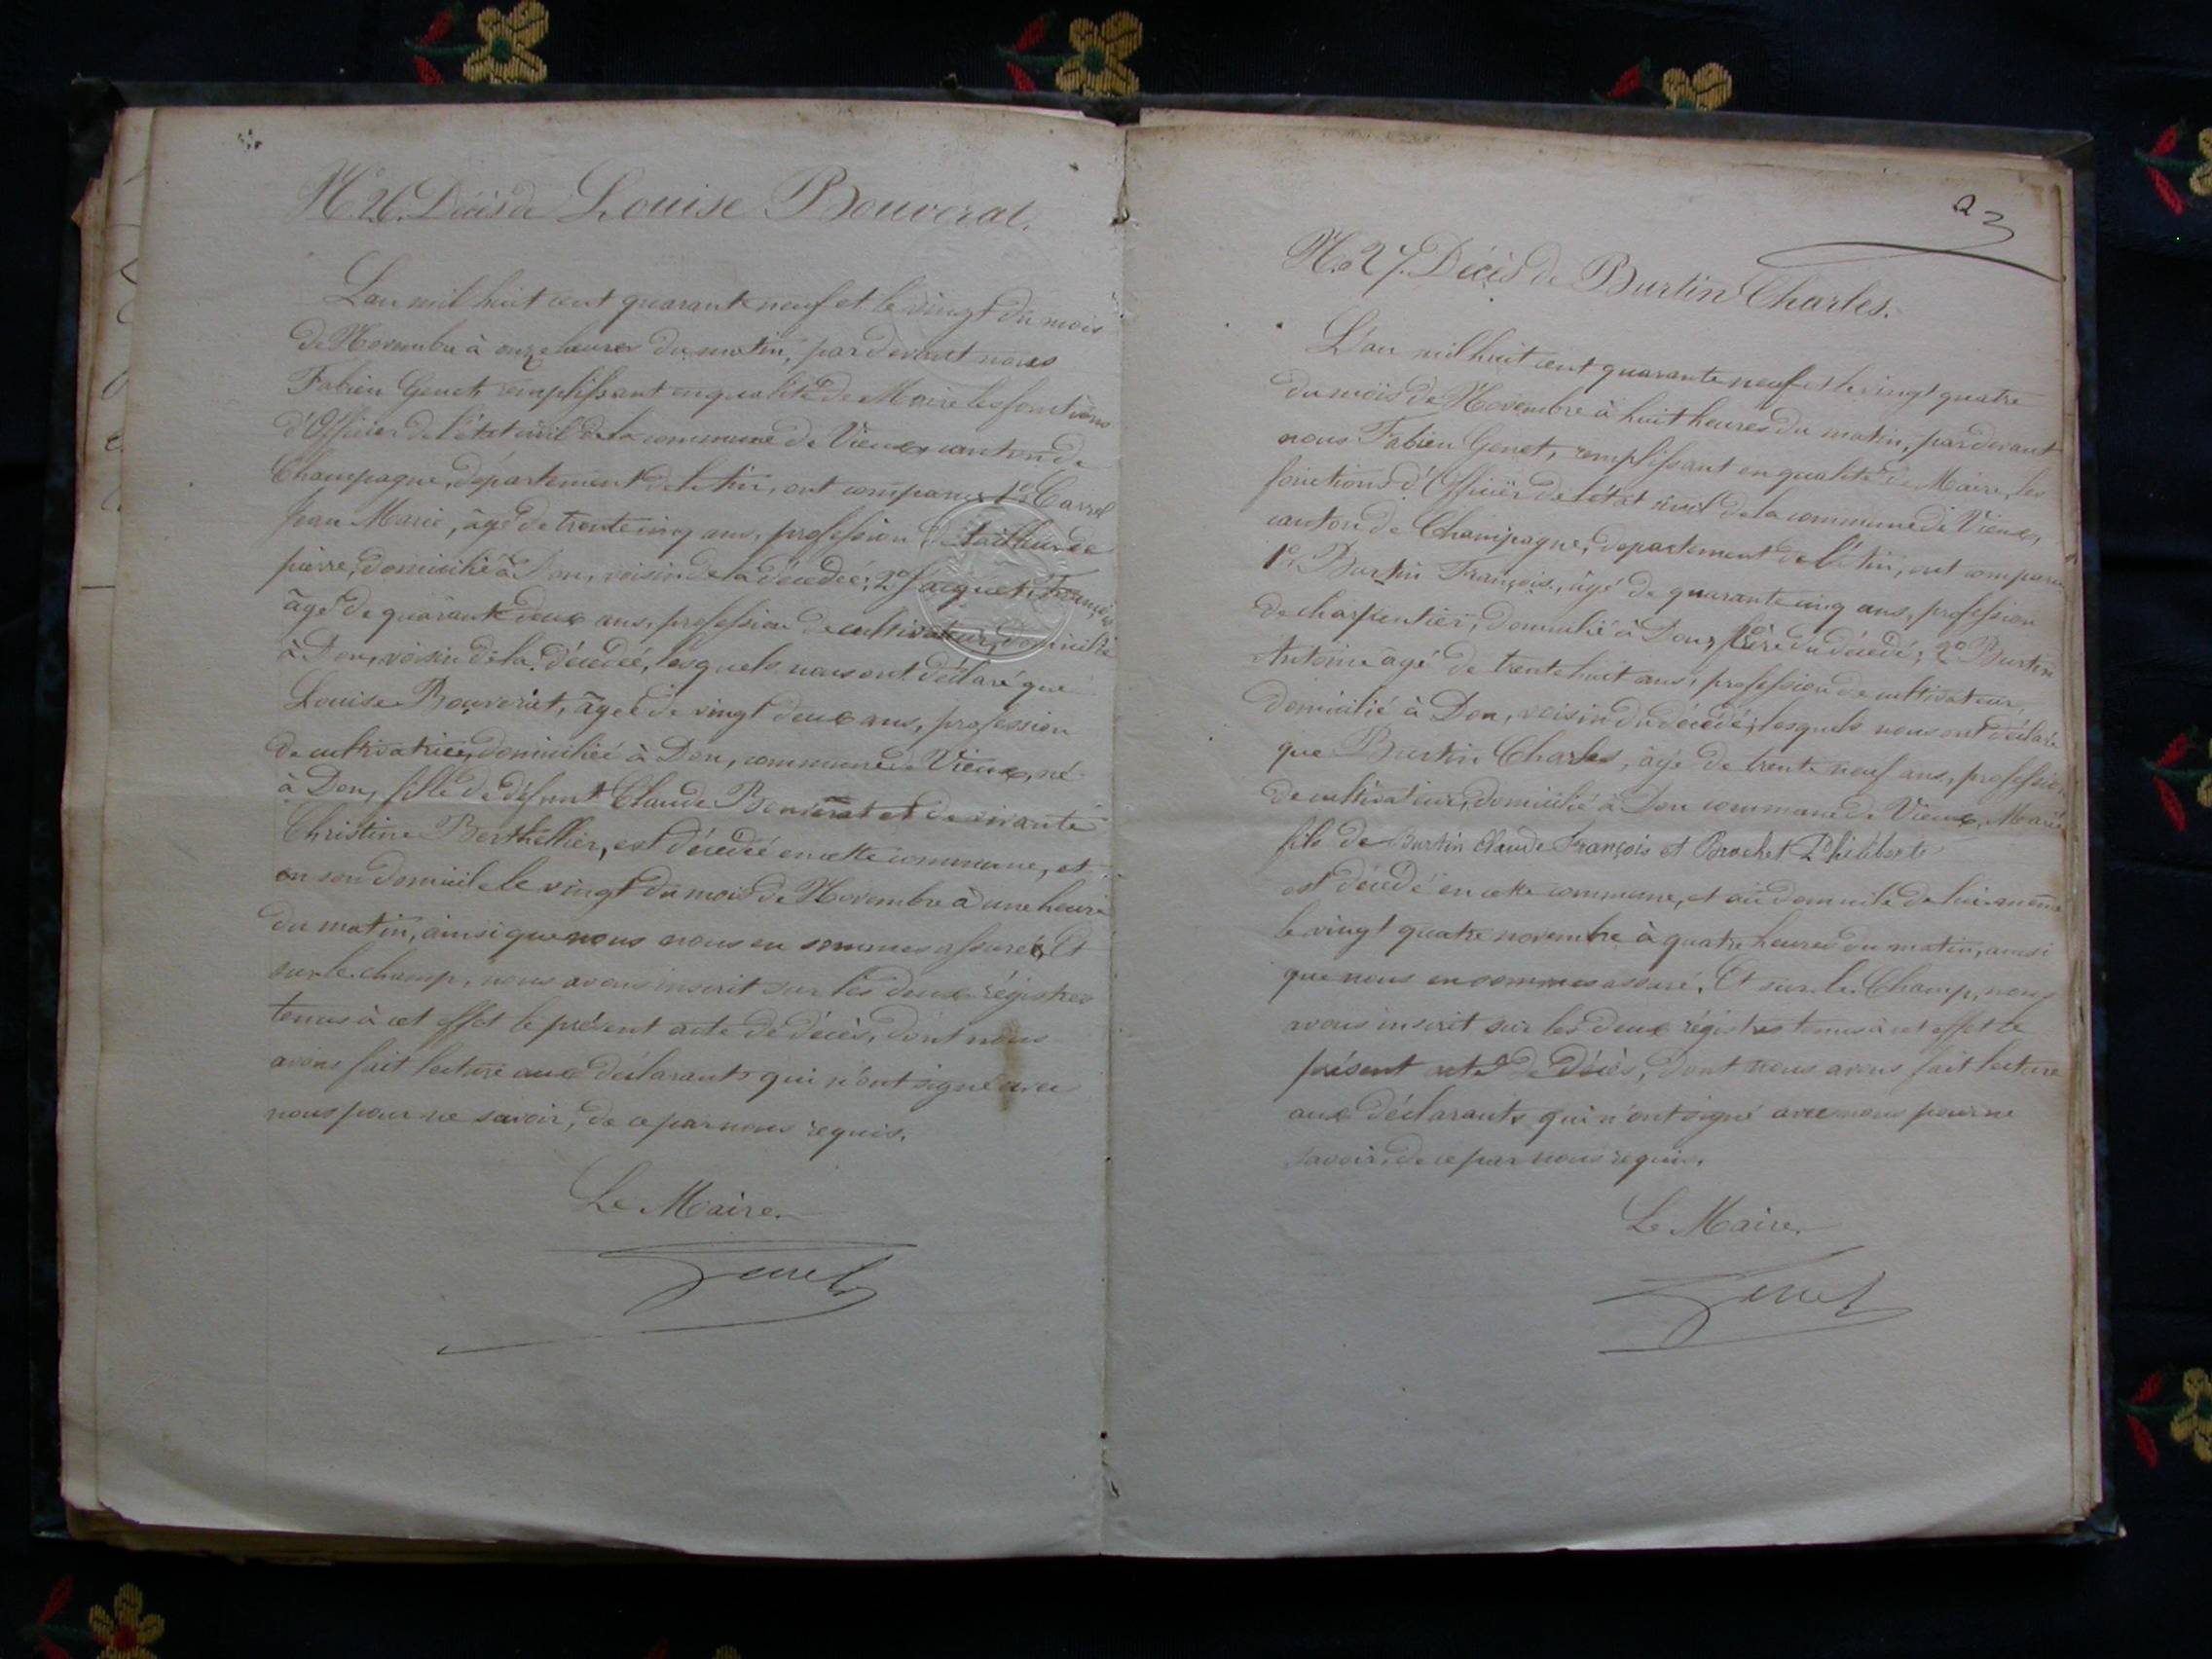 N.° 26. Décès de Louise Bouverat.
L'an mil huit cent quarante neuf et le vingt du mois
de Novembre à onze heures du matin, par devant nous
Fabien Genet, remplissant en qualité de Maire les fonctions
d'Officier de l'état civil de la commune de Vieux, canton de
Champagne, département de l'Ain, ont comparus 1° Carrel
Jean Marie, âgé de trente cinq ans, profession de tailleur de
pierre, domicilié à Don, voisin de la décedée; 2° Jacquet François
âgé de quarante deux ans, profession de cultivateur, domicilié
à Don, voisin de la décedeé, lesquels nous ont déclaré que
Louise Bouverat, âgeé de vingt deux ans, profession
de cultivatrice, domiciliée à Don, commune de Vieux, né
à Don, fille de défunt Claude Bouverat et de vivante
Christine Berthellier, est décedée en cette commune, et
en son domicile le vingt du mois de Novembre à une heure
du matin, ainsi que nous nous en sommes assurés, Et
sur le champ, nous avons inscrit sur les deux régistres
tenus à cet effet le présent acte de décès, dont nous
avons fait lecture aux déclarants qui n'ont signé avec
nous pour ne savoir, de ce par nous requis.
Le Maire.
Genet
23
N.° 27. Décès de Burtin Charles.
L'an mil huit cent quarante neuf et le vingt quatre
du mois de Novembre à huit heures du matin, par devant
nous Fabien Genet, remplissant en qualité de Maire, les
fonctions d'Officier de l'état civil de la commune de Vieux,
canton de Champagne, departement de l'Ain, ont comparu
1° Burtin François, âgé de quarante cinq ans, profession
de charpentier, domicilié à Don, frère du décedé; 2° Burtin
Antoine âgé de trente huit ans, profession de cultivateur,
domicilié à Don, voisin du décedé; lesquels nous ont déclaré
que Burtin Charles, âgé de trente neuf ans, profession
de cultivateur, domicilié à Don commune de Vieux, Marié
fils de Burtin Claude François et Brochet Philiberte
est décedé en cette commune, et au domicile de lui-même
le vingt quatre novembre à quatre heures du matin, ainsi
que nous en sommes assuré. Et sur le Champ, nous
avons inscrit sur les deux régistres tenus à cet effet le
présent acte de Décès, dont nous avons fait lecture
aux déclarants qui n'ont signé avec nous pour ne
savoir, de ce par nous requis.
Le Maire.
Genet